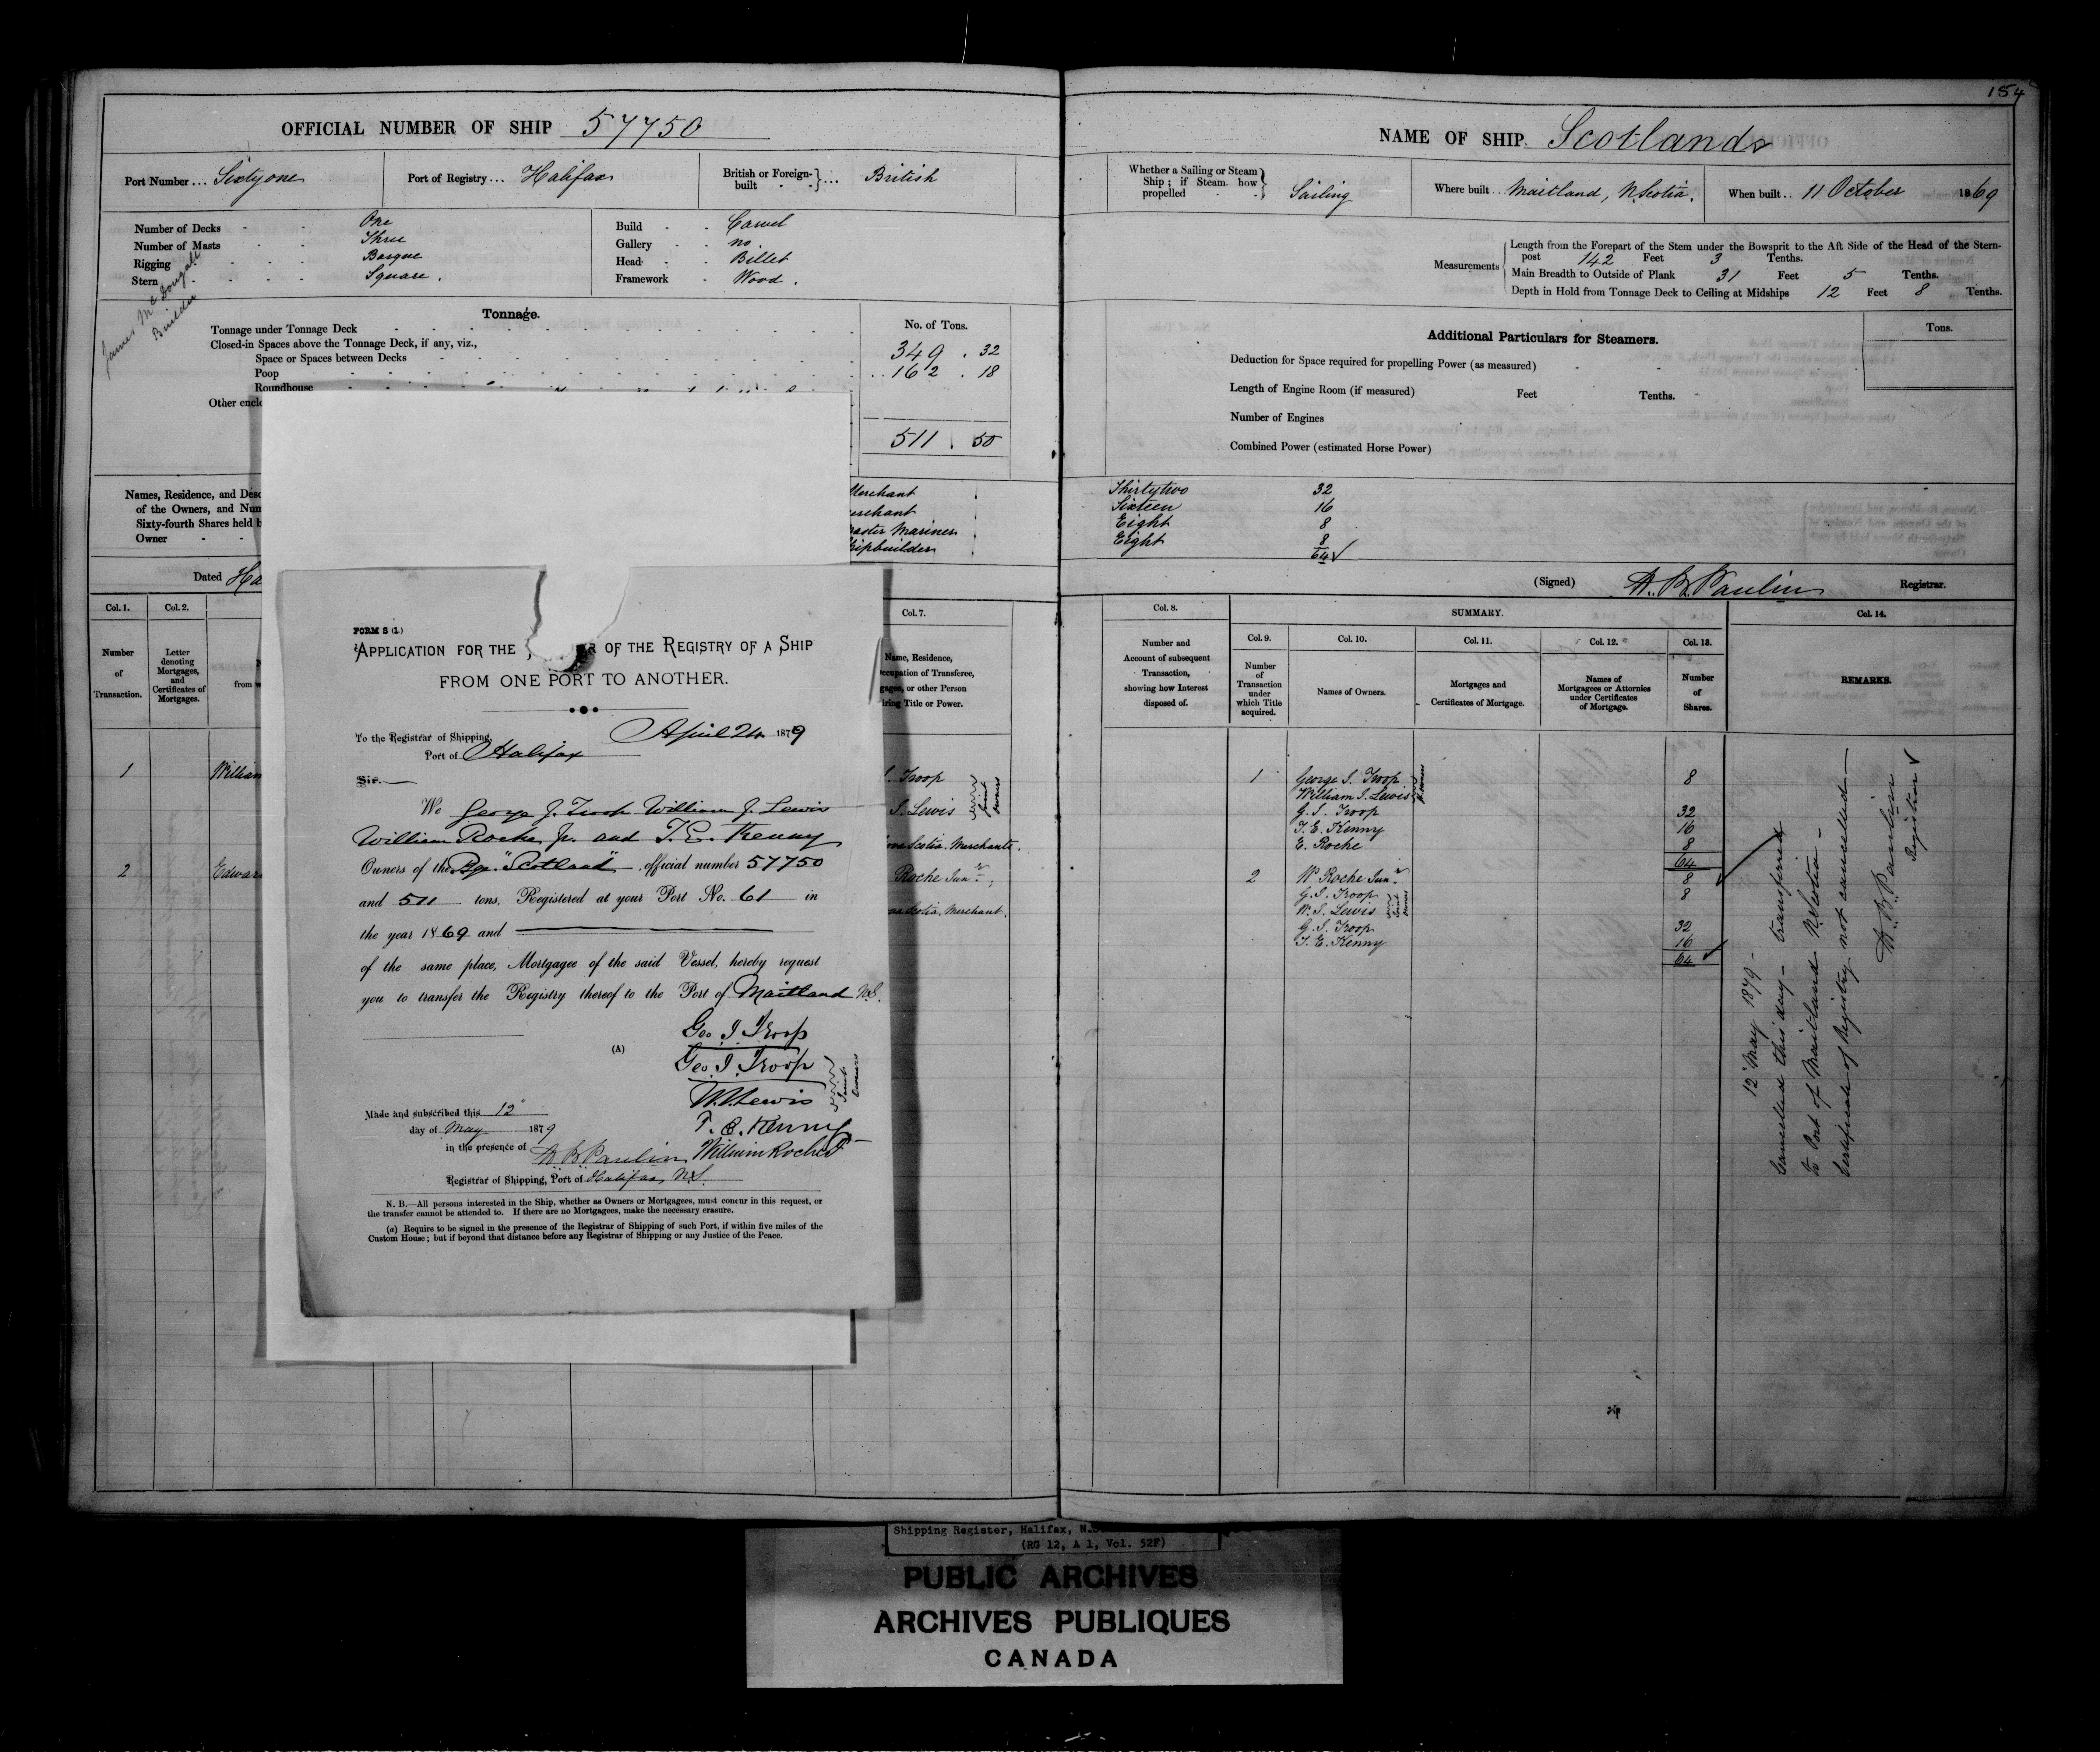 154
OFFICIAL NUMBER OF SHIP 57750
Port Number ... Sixtyone
Port of Registry ... Halifax
British or Foreign-built } ... British
Number of Decks - - One
Number of Masts - - Three
Rigging - - - Barque
Stern - - - - Square.
James McDougall
Builder
Build - - Carvel
Gallery - - no.
Head - - Billet
Framework - Wood.
Tonnage.
No. of Tons.
Tonnage under Tonnage Deck
Closed-in Spaces above the Tonnage Deck, if any, viz.,
Space or Spaces between Decks 349 . 32
Poop 162 . 18
Roundhouse
Other enclo
511 . 50
Names, Residence, and Desc
of the Owners, and Num
Sixty-fourth Shares held b
Owner - -
Merchant
erchant
aster Mariner
hipbuilder
Dated Ha
Col. 1.
Col. 2.
Col. 7.
Number of Transaction.
Letter denoting Mortgages, and Certificates of Mortgages.
N
from w
Name, Residence,
ccupation of Transferee,
gagee, or other Person
iring Title or Power.
1
William
. Troop
S. Lewis
joint owners
ova Scotia. Merchants.
2
Edwar
Roche Junr. ;
ova Scotia. Merchant.
FORM S (1.)
APPLICATION FOR THE R OF THE REGISTRY OF A SHIP
FROM ONE PORT TO ANOTHER.
To the Registrar of Shipping, April 24 1879
Port of Halifax
Sir.
We George J. Troop William J. Lewis
William Roche Jr. and T. E. Kenny
Owners of the Bge. "Scotland" official number 57750
and 511 tons, Registered at your Port No. 61 in
the year 1869 and
of the same place, Mortgagee of the said Vessel, hereby request
you to transfer the Registry thereof to the Port of Maitland N.S.
(A)
Geo. J. Troop
Geo. J. Troop
W. J. Lewis
Joint Owners
T. E. Kenny
William Roche Jr
Made and subscribed this 12"
day of May 1879
in the presence of
W B Paulin
Registrar of Shipping, Port of Halifax, N.S.
N. B.—All persons interested in the Ship, whether as Owners or Mortgagees, must concur in this request, or
the transfer cannot be attended to. If there are no Mortgagees, make the necessary erasure.
(a) Require to be signed in the presence of the Registrar of Shipping of such Port, if within five miles of the
Custom House; but if beyond that distance before any Registrar of Shipping or any Justice of the Peace.
NAME OF SHIP. Scotland
Whether a Sailing or Steam Ship; if Steam how propelled } Sailing
Where built ... Maitland, N. Scotia.
When built .. 11 October 1869
Measurements
Length from the Forepart of the Stem under the Bowsprit to the Aft Side of the Head of the Stern-
post 142 Feet 3 Tenths.
Main Breadth to Outside of Plank 31 Feet 5 Tenths.
Depth in Hold from Tonnage Deck to Ceiling at Midships 12 Feet 8 Tenths.
Additional Particulars for Steamers.
Tons.
Deduction for Space required for propelling Power (as measured)
Length of Engine Room (if measured) Feet Tenths.
Number of Engines
Combined Power (estimated Horse Power)
Thirtytwo 32
Sixteen 16
Eight 8
Eight 8
64
(Signed) W. B. Paulin Registrar.
Col. 8.
SUMMARY.
Col. 14.
Col. 9.
Col. 10.
Col. 11.
Col. 12.
Col. 13.
Number and Account of subsequent Transaction, showing how Interest disposed of.
Number of Transaction under which Title acquired.
Names of Owners.
Mortgages and Certificates of Mortgage.
Names of Mortgagees or Attornies under Certificates of Mortgage.
Number of Shares.
REMARKS.
1 George J. Troop 8
William J. Lewis
G. J. Troop 32
T. E. Kenny 16
E. Roche 8
64
2 W. Roche Junr. 8
G. J. Troop 8
W. J. Lewis
joint owners
G. J. Troop 32
T. E. Kenny 16
64
12 May 1879 -
Cancelled this day - transferred
to Port of Maitland N. Scotia -
Certificate of Registry not cancelled -
W. B. Paulin
Registrar
Shipping Register, Halifax, N.S.
(RG 12, A 1, Vol. 52F)
PUBLIC ARCHIVES
ARCHIVES PUBLIQUES
CANADA